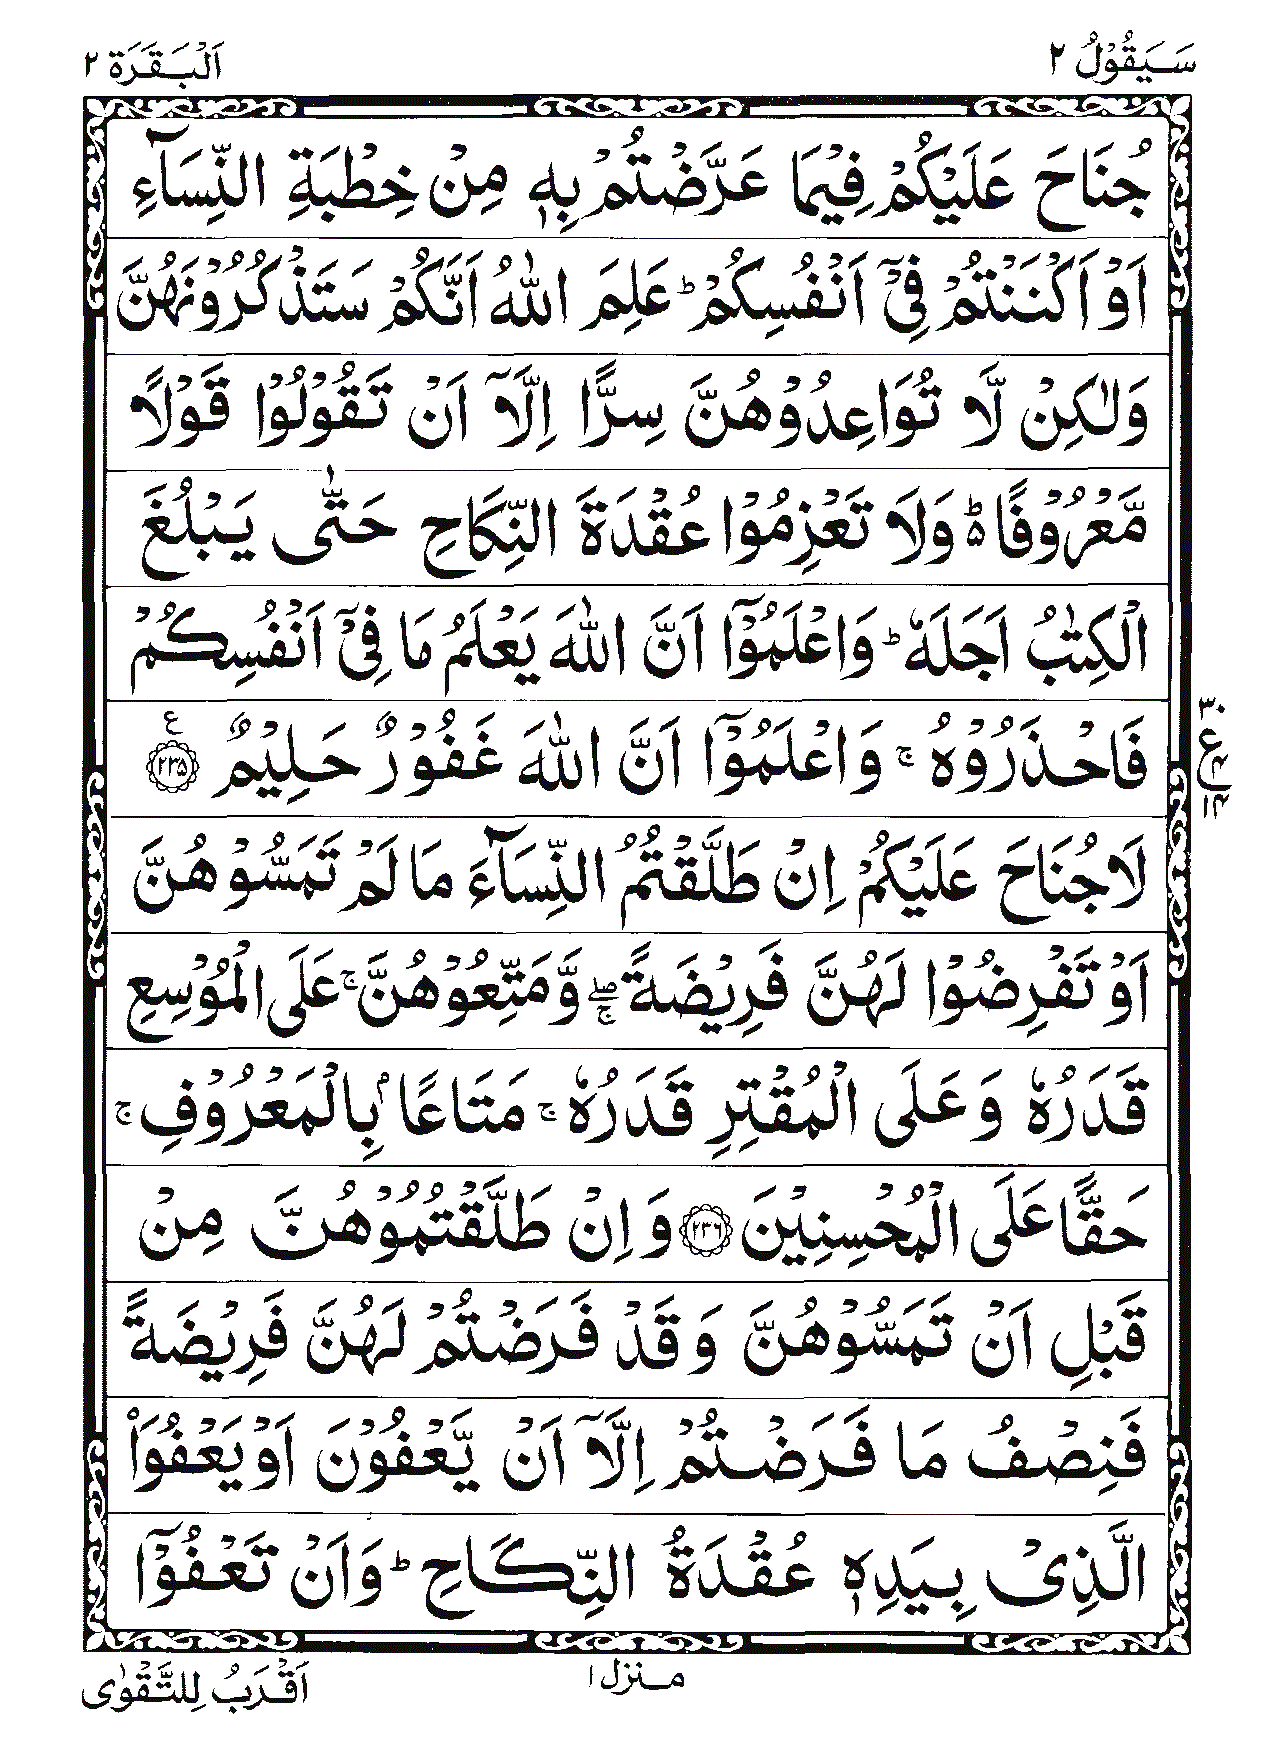 سَيَقُوْلُ ٢
اَلْبَقَرَة ٢
جُنَاحَ عَلَيْكُمْ فِيْمَا عَرَّضْتُمْ بِهٖ مِنْ خِطْبَةِ النِّسَآءِ
اَوْ اَكْنَنْتُمْ فِيْٓ اَنْفُسِكُمْ ؕ عَلِمَ اللّٰهُ اَنَّكُمْ سَتَذْكُرُوْنَهُنَّ
وَلٰكِنْ لَّا تُوَاعِدُوْهُنَّ سِرًّا اِلَّآ اَنْ تَقُوْلُوْا قَوْلًا
مَّعْرُوْفًا ؕ۬ وَلَا تَعْزِمُوْا عُقْدَةَ النِّكَاحِ حَتّٰى يَبْلُغَ
الْكِتٰبُ اَجَلَهٗ ؕ وَاعْلَمُوْٓا اَنَّ اللّٰهَ يَعْلَمُ مَا فِيْٓ اَنْفُسِكُمْ
فَاحْذَرُوْهُ ۚ وَاعْلَمُوْٓا اَنَّ اللّٰهَ غَفُوْرٌ حَلِيْمٌ ﴿٢٣٥﴾ ع
٣٠
ع
٤
١٤
لَا جُنَاحَ عَلَيْكُمْ اِنْ طَلَّقْتُمُ النِّسَآءَ مَا لَمْ تَمَسُّوْهُنَّ
اَوْ تَفْرِضُوْا لَهُنَّ فَرِيْضَةً ۖۚ وَّمَتِّعُوْهُنَّ ۚ عَلَى الْمُوْسِعِ
قَدَرُهٗ وَعَلَى الْمُقْتِرِ قَدَرُهٗ ۚ مَتَاعًاۢ بِالْمَعْرُوْفِ ۚ
حَقًّا عَلَى الْمُحْسِنِيْنَ ﴿٢٣٦﴾ وَاِنْ طَلَّقْتُمُوْهُنَّ مِنْ
قَبْلِ اَنْ تَمَسُّوْهُنَّ وَقَدْ فَرَضْتُمْ لَهُنَّ فَرِيْضَةً
فَنِصْفُ مَا فَرَضْتُمْ اِلَّآ اَنْ يَّعْفُوْنَ اَوْ يَعْفُوَا۟
الَّذِيْ بِيَدِهٖ عُقْدَةُ النِّكَاحِ ؕ وَاَنْ تَعْفُوْٓا
منزل ١
اَقْرَبُ لِلتَّقْوٰى